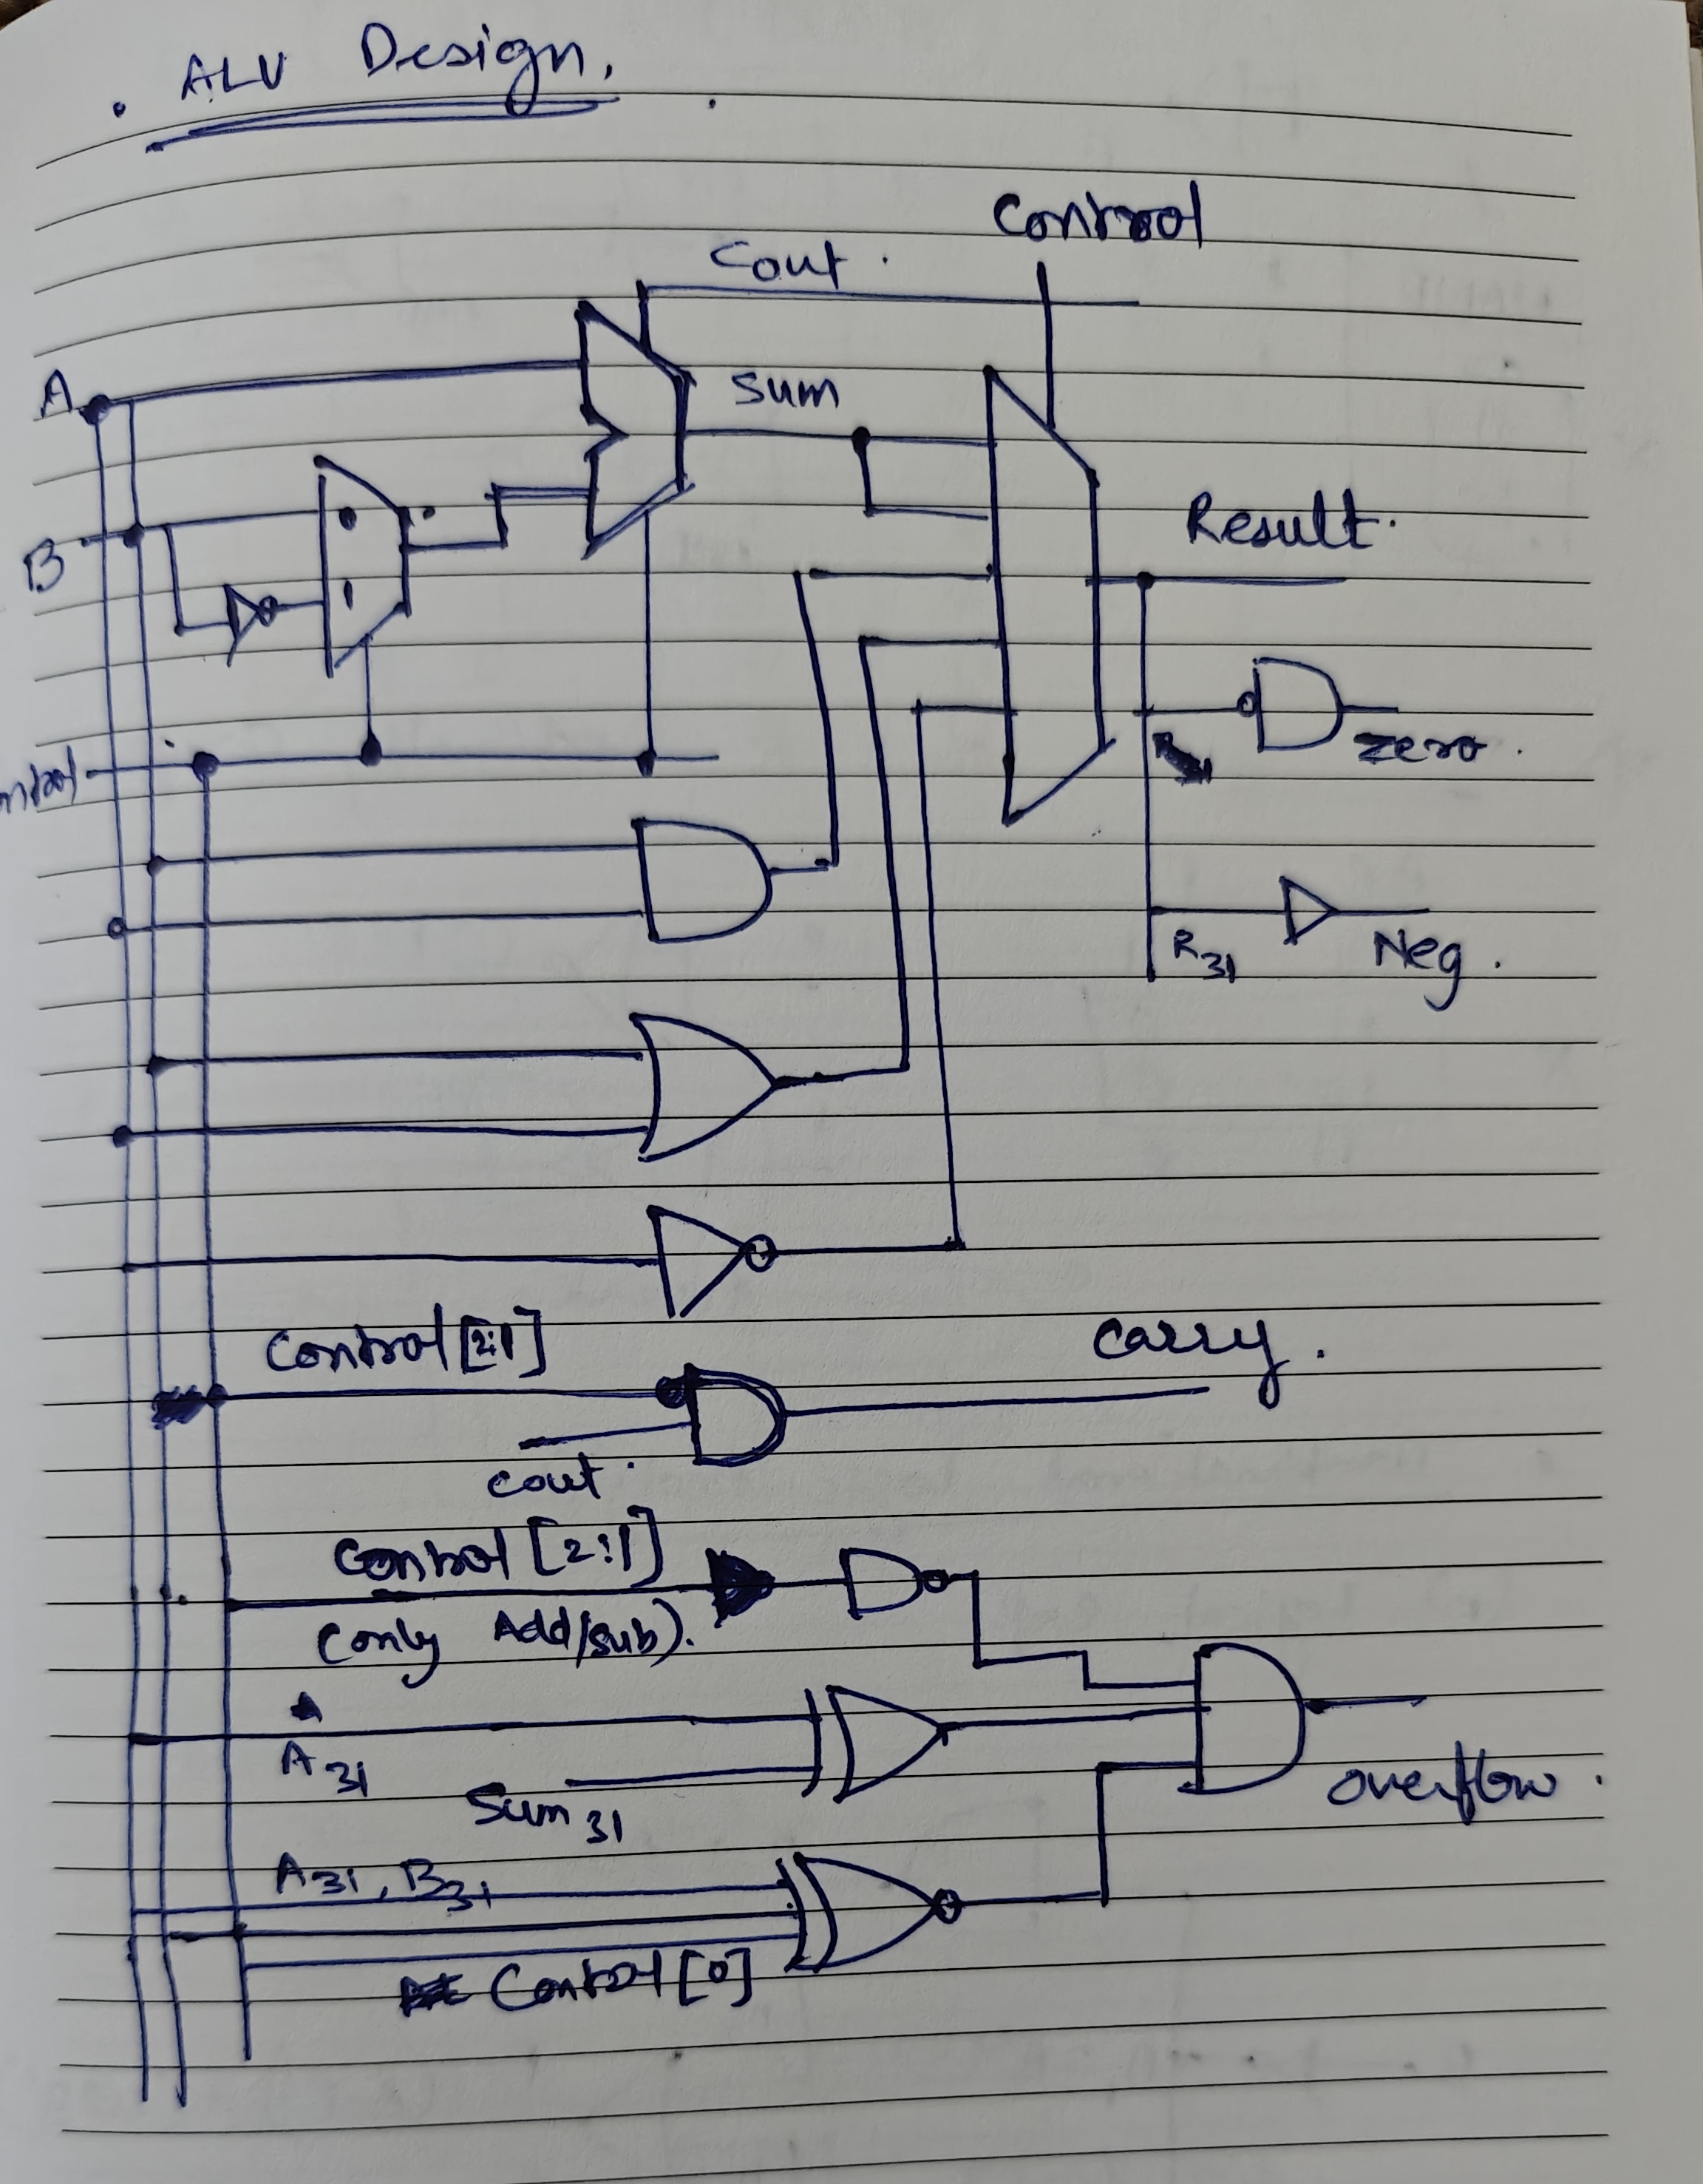 . ALU Design.
Control
Cout.
A
Sum
0
Result.
B
1
ntrol
Zero.
R31
Neg.
Control [2:1]
Carry.
Cout.
Control [2:1]
(only Add/Sub).
A31
Sum 31
Overflow.
A31, B31
Control [0]